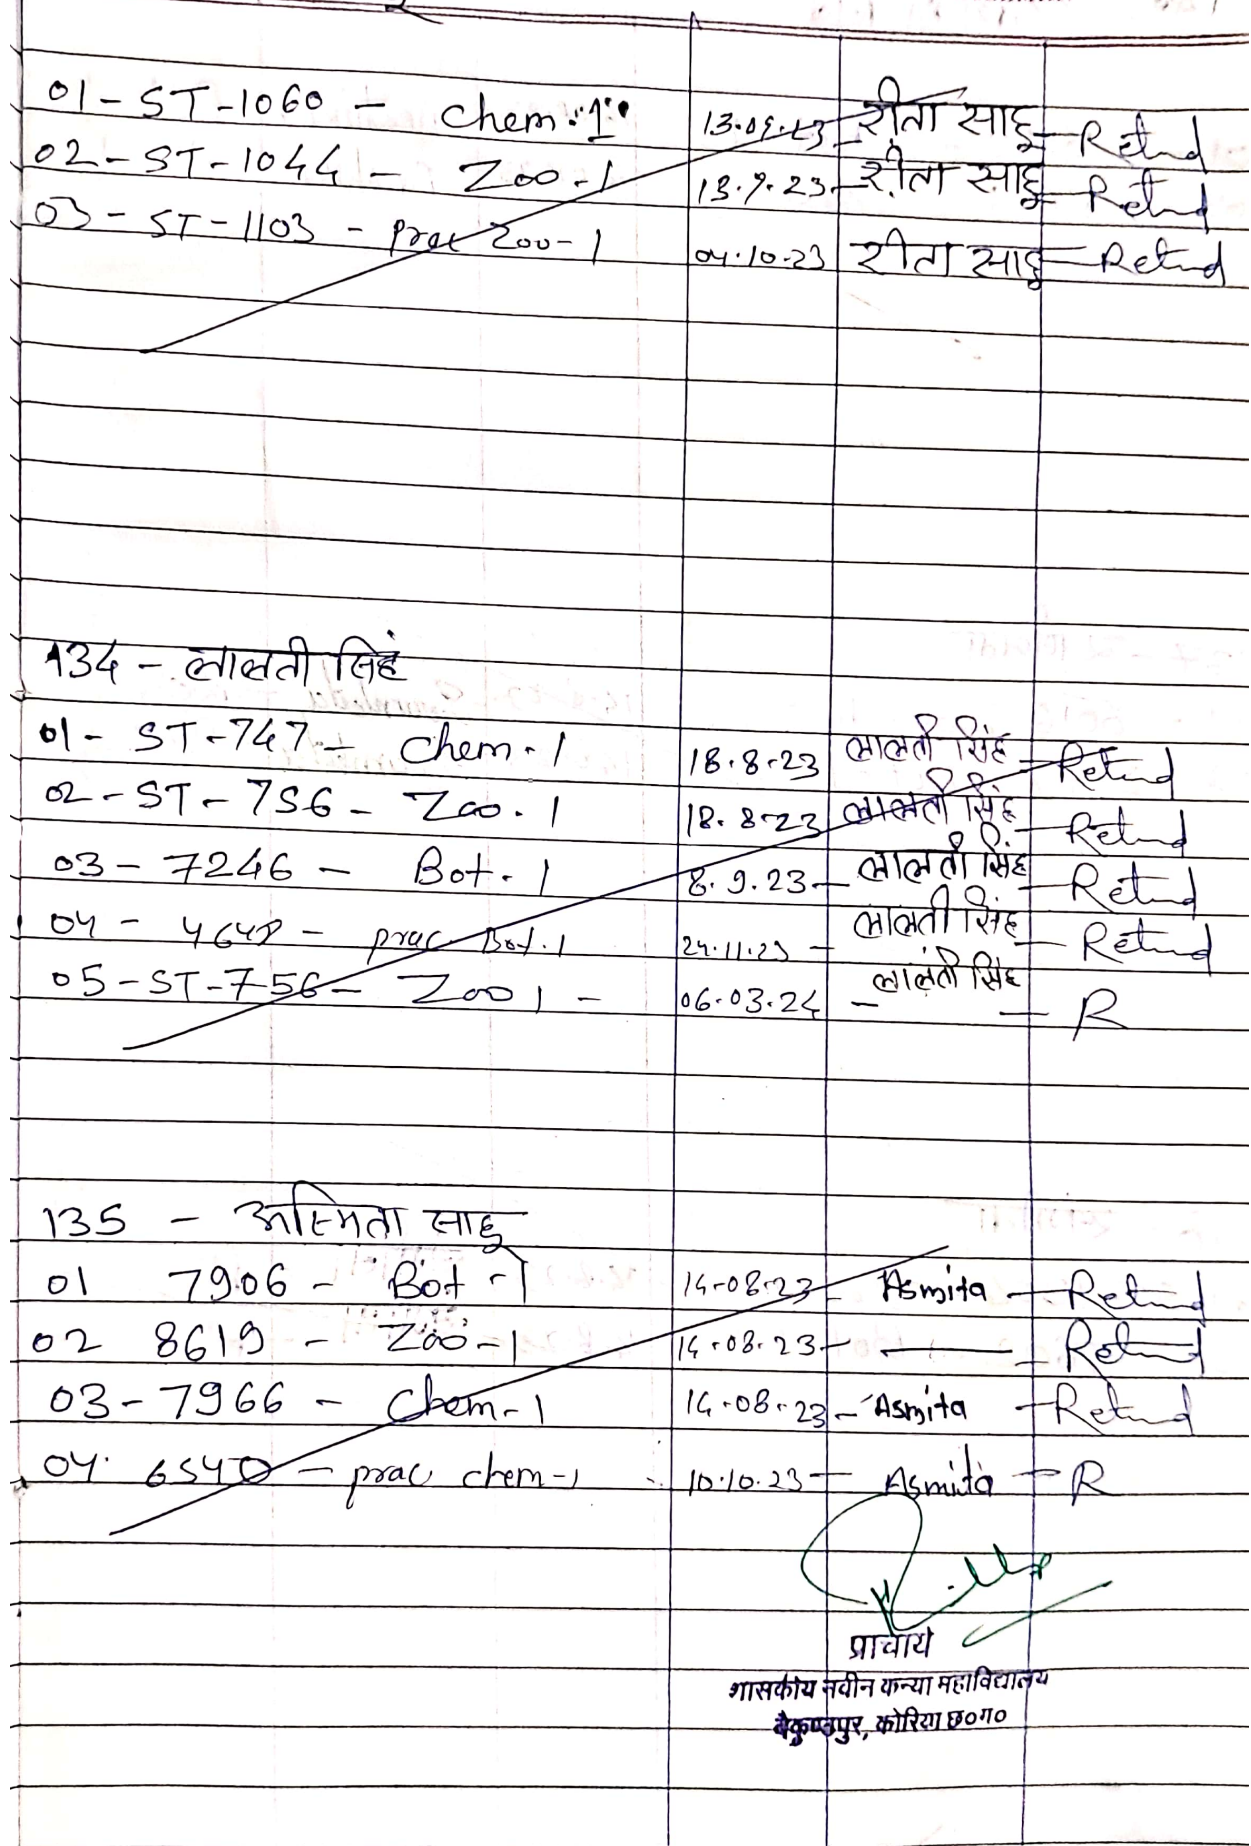 01-ST-1060 - Chem.1 13.09.23 - रीता साहू - Retnd
02-ST-1044 - Zoo-1 13.9.23 - रीता साहू - Retnd
03-ST-1103 - prac Zoo-1 04.10.23 रीता साहू - Retnd
134 - लालती सिहं
01- ST-747 - Chem-1 18.8.23 लालती सिंह - Retnd
02-ST-756- Zoo.1 18.8.23 लालती सिंह - Retnd
03-7246 - Bot-1 8.9.23 - लालती सिंह - Retnd
04 - 4648 - prac Bot.1 24.11.23 - लालती सिंह - Retnd
05-ST-756- Zoo1 - 06.03.24 - लालती सिंह - R
135 - अस्मिता साहू
01 7906 - Bot-1 14-08-23 - Asmita - Retnd
02 8619 - Zoo-1 14-08-23 - — - Retnd
03-7966 - Chem-1 14-08-23 - Asmita - Retnd
04. 6540 - prac chem-1 10.10.23 - Asmita - R
प्राचार्य
शासकीय नवीन कन्या महाविद्यालय
बैकुण्ठपुर, कोरिया छ०ग०